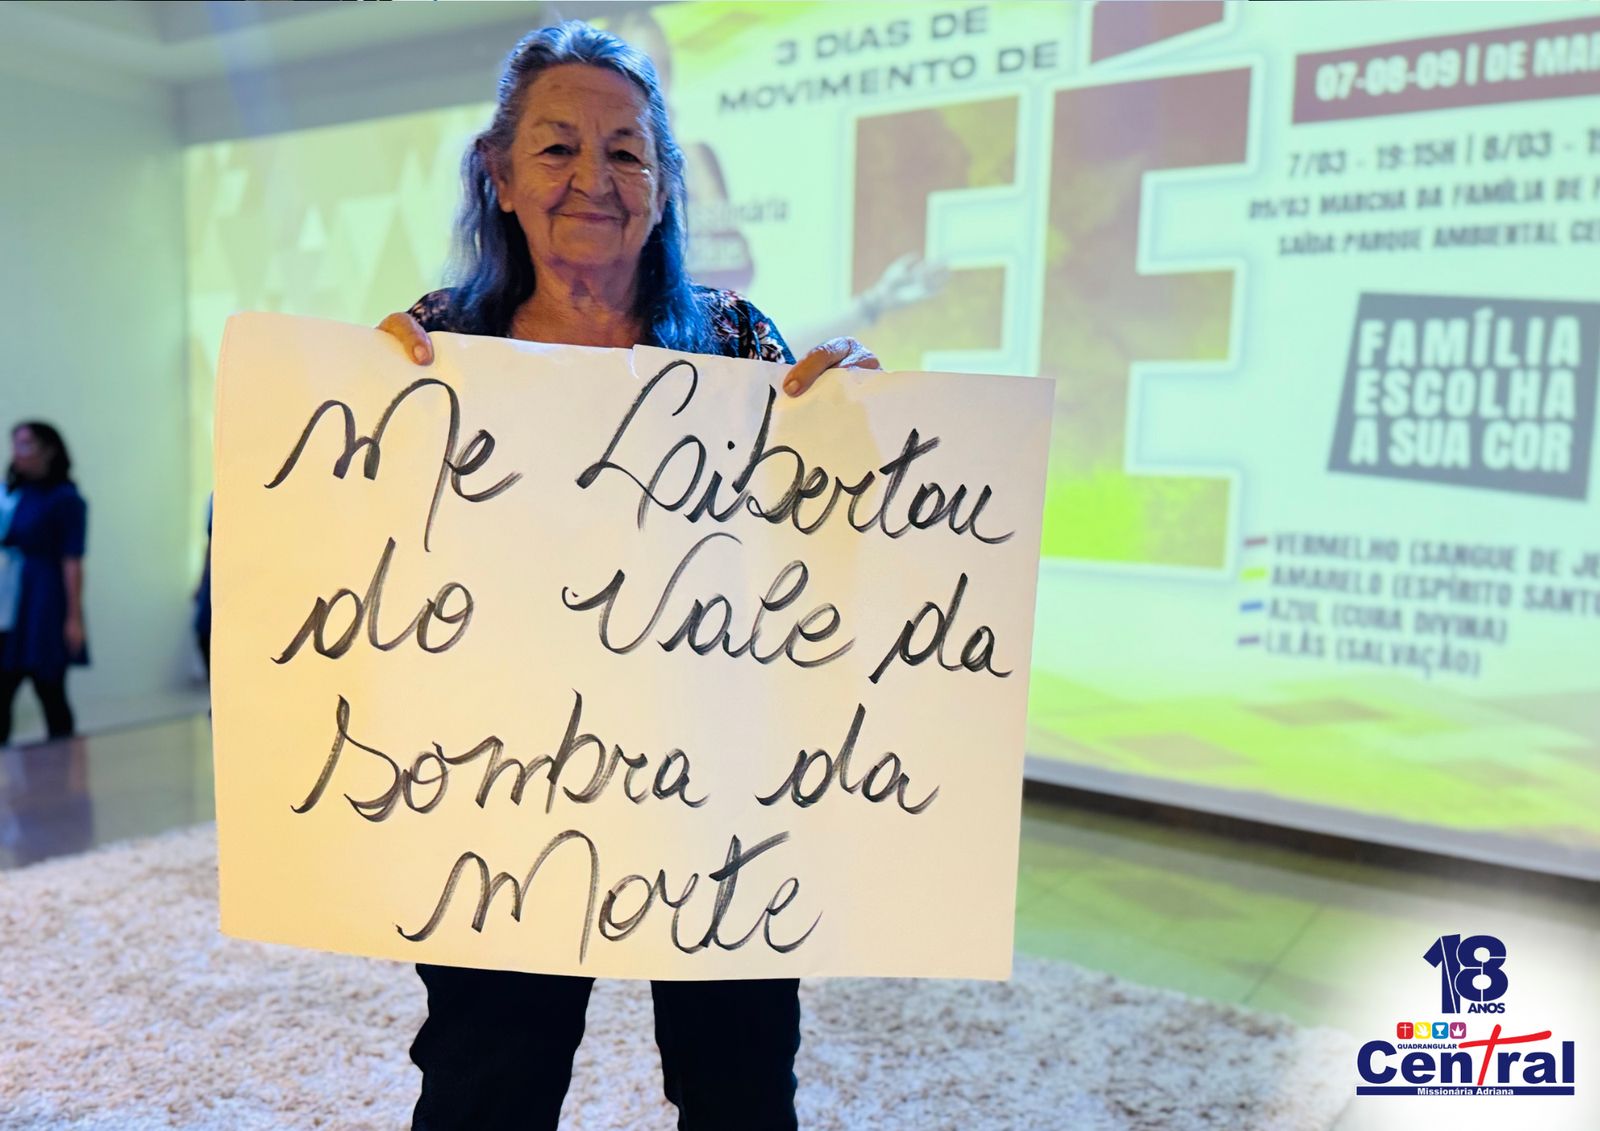 3 DIAS DE
MOVIMENTO DE
FÉ
07-08-09 | DE MAR
7/03 - 19:15H | 8/03 - 1
09/03 MARCHA DA FAMÍLIA DE
SAÍDA: PARQUE AMBIENTAL CE
FAMÍLIA
ESCOLHA
A SUA COR
VERMELHO (SANGUE DE JE
AMARELO (ESPÍRITO SANTO
AZUL (CURA DIVINA)
LILÁS (SALVAÇÃO)
Me Libertou
do Vale da
Sombra da
Morte
18
ANOS
QUADRANGULAR
Central
Missionária Adriana